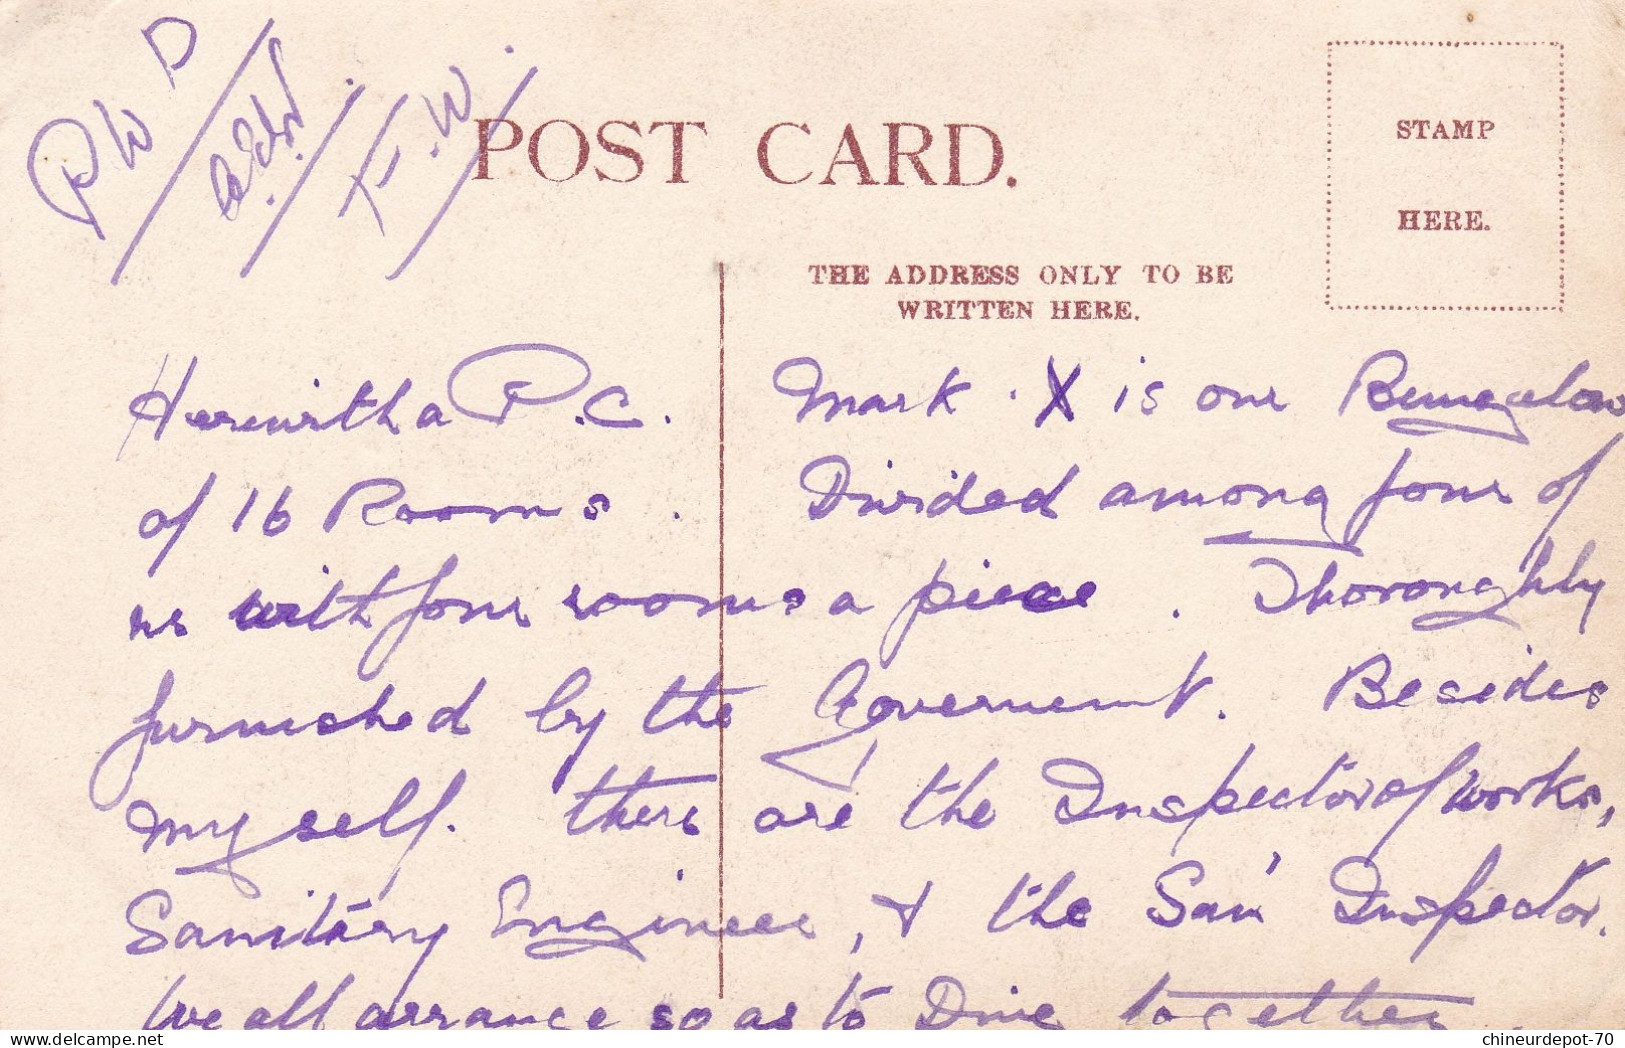 PWD
F.W.
POST CARD.
STAMP
HERE.
THE ADDRESS ONLY TO BE
WRITTEN HERE.
Herewith a P.C. Mark X is our Bungalow
of 16 Rooms. Divided among four of
us with four rooms a piece. Thoroughly
furnished by the Government. Besides
myself. there are the Inspector of works,
Sanitary Engineer, & the San' Inspector.
We all arrange so as to Dine together.
chineurdepot-70